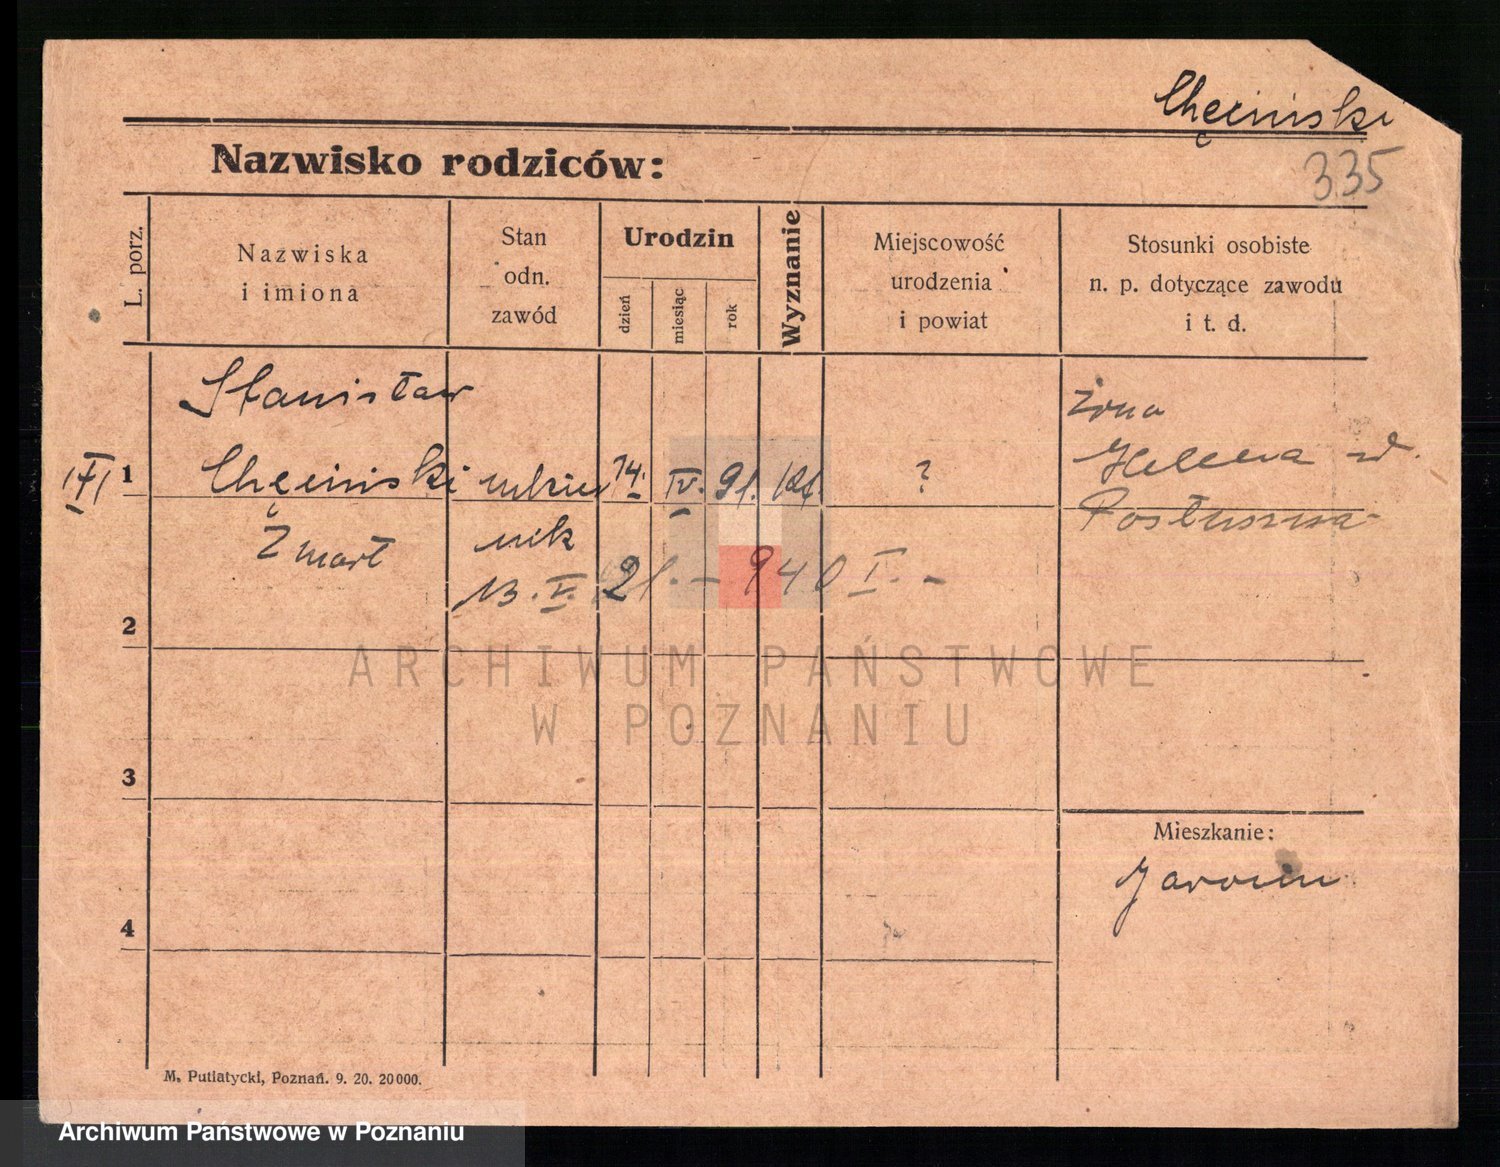 Chęciński
335
Nazwisko rodziców:
L. porz.
Nazwiska
i imiona
Stan
odn.
zawód
Urodzin
dzień
miesiąc
rok
Wyznanie
Miejscowość
urodzenia
i powiat
Stosunki osobiste
n. p. dotyczące zawodu
i t. d.
Stanisław
żona
1
Chęciński
14.
IV.
91.
kat.
?
Helena
Zmarł
nik
13. V. 21. - 940 I. -
2
ARCHIWUM PAŃSTWOWE
W POZNANIU
3
Mieszkanie:
4
M. Putiatycki, Poznań. 9. 20. 20000.
Archiwum Państwowe w Poznaniu